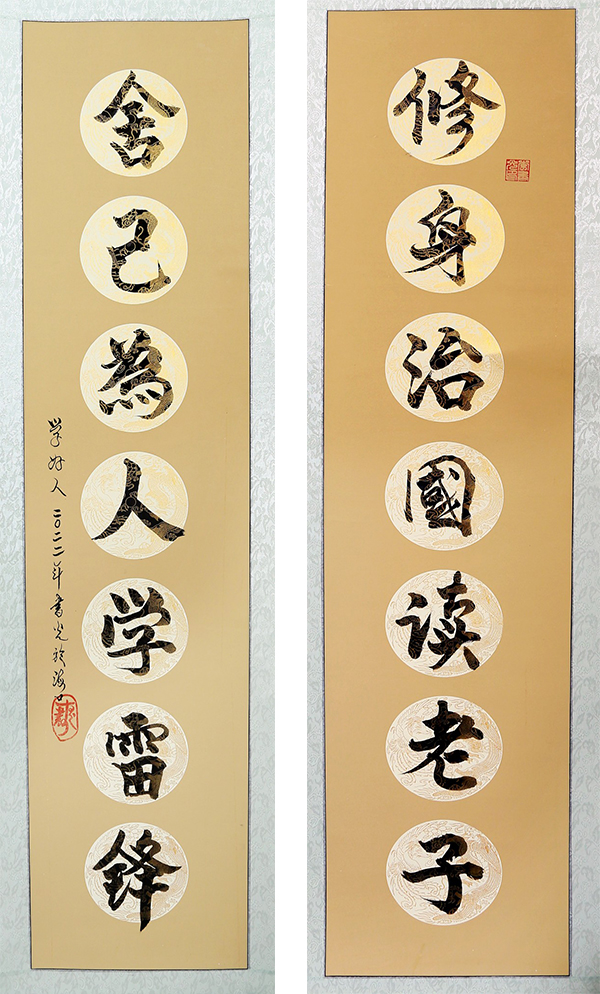 修身治國读老子
舍己為人学雷锋
学好人 二〇二二年 書光於海口